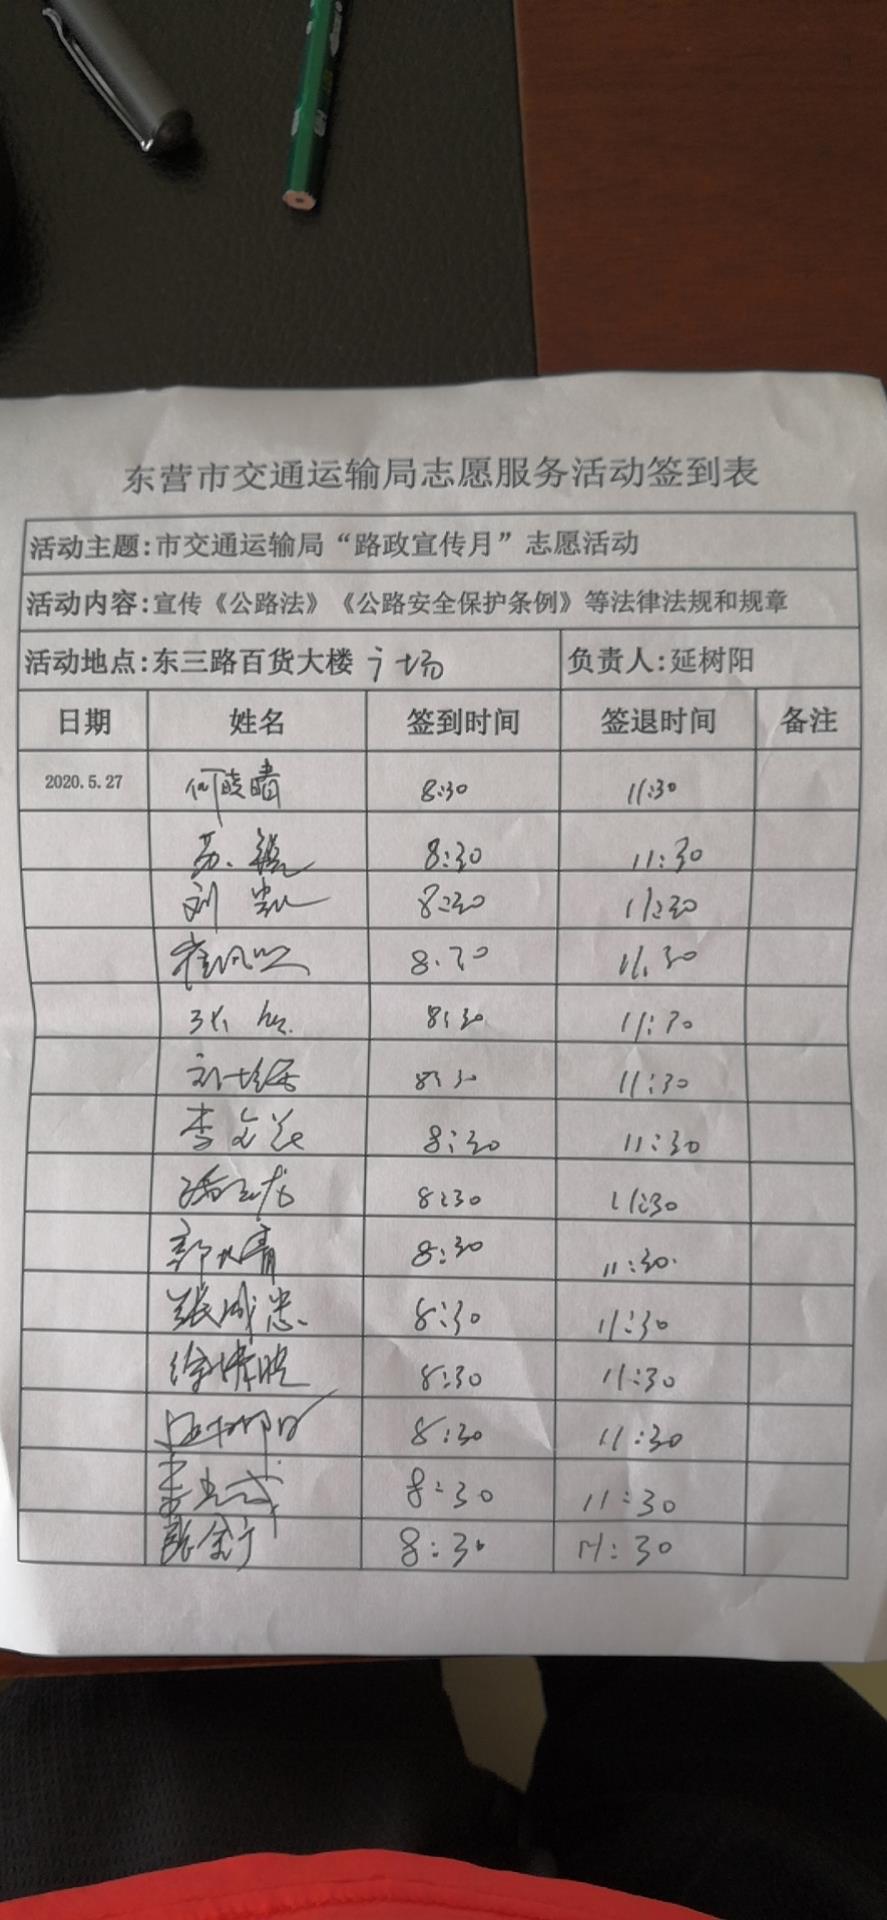 东营市交通运输局志愿服务活动签到表
活动主题:市交通运输局“路政宣传月”志愿活动
活动内容:宣传《公路法》《公路安全保护条例》等法律法规和规章
活动地点:东三路百货大楼广场 负责人:延树阳
日期 姓名 签到时间 签退时间 备注
2020.5.27 何晓晴 8:30 11:30
苏 8:30 11:30
刘凯 8:30 11:30
崔 8:30 11:30
张 8:30 11:30
刘 8:30 11:30
李文 8:30 11:30
8:30 11:30
郭 8:30 11:30
张成忠 8:30 11:30
徐 8:30 11:30
延树阳 8:30 11:30
李 8:30 11:30
张金 8:30 11:30